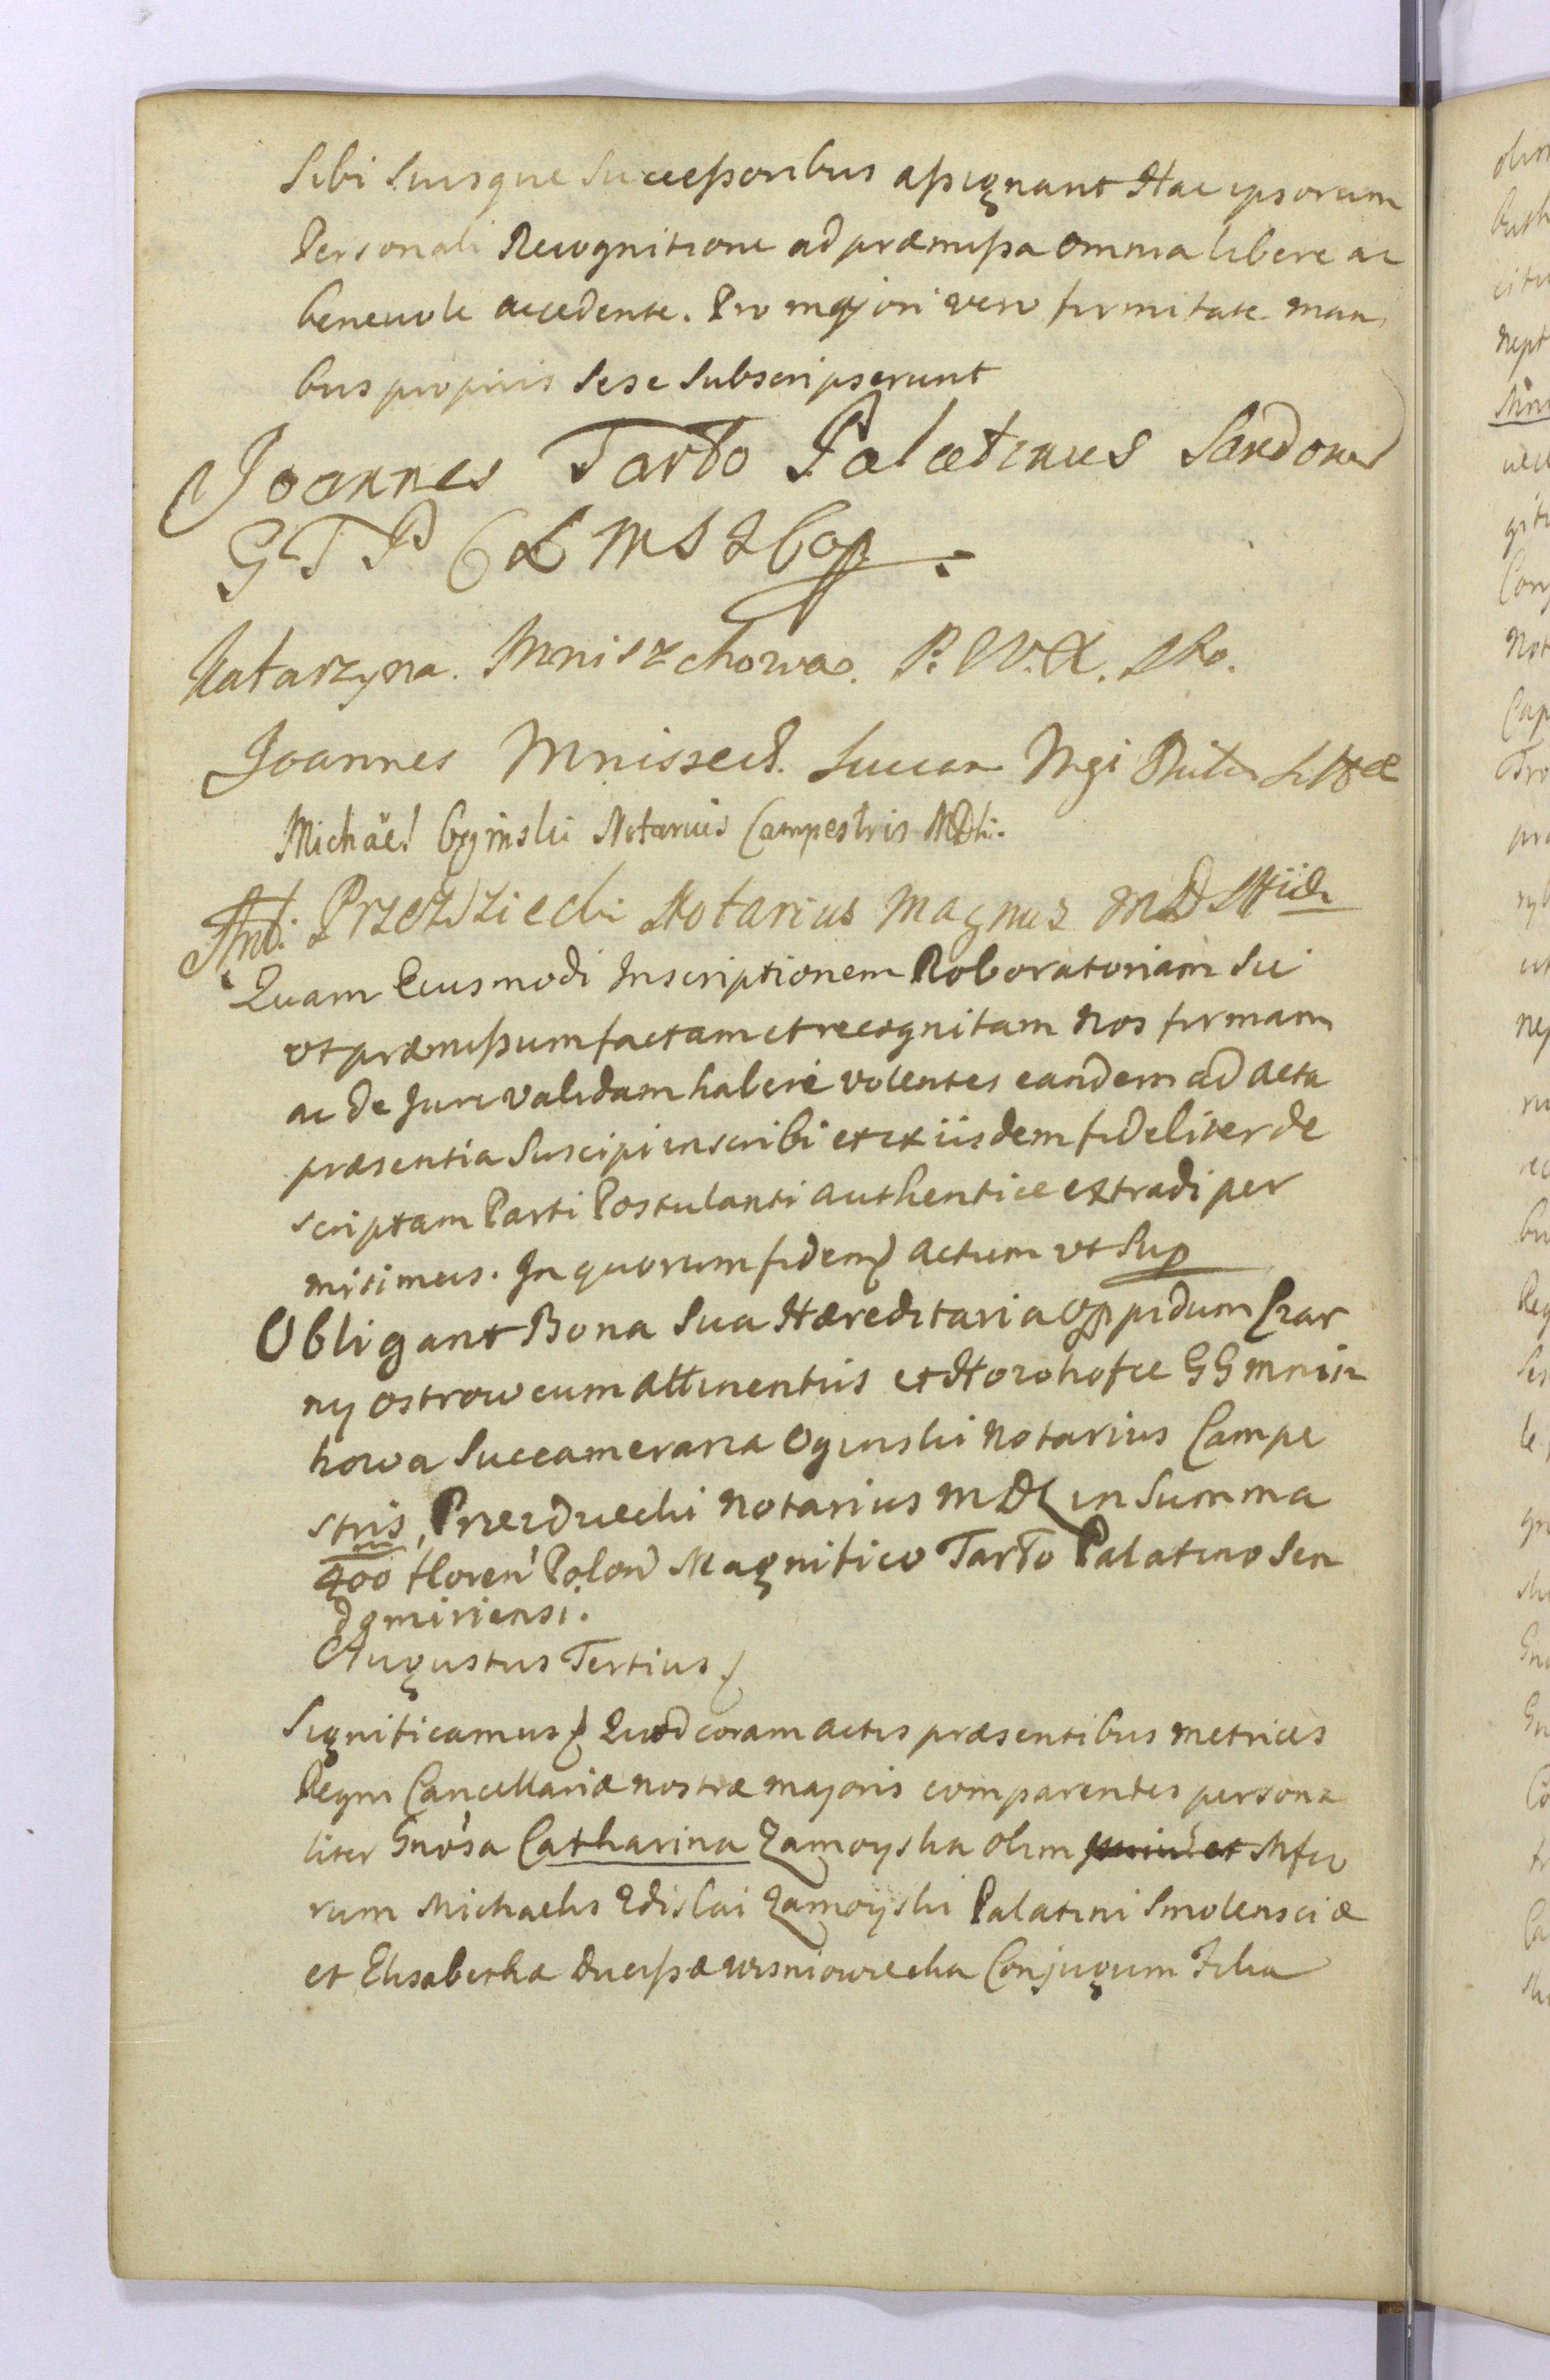 Sibi Suisque Successoribus assignant Hac ipsorum
Personali Recognitione ad præmissa omnia libere ac
benevole accedente. Pro majori vero firmitate manu
bus propriis sese subscripserunt
Joannes Tarło Palatinus Sandomi
GTP
Katarzyna. Mniszchowa. P. W. X. Lko.
Joannes Mnissech. Succam Mgi Ducis Litto
Michaël Oginski Notarius Campestris MDLi.
Ant. Przezdziecki Notarius Magnus MD Litt
Quam Ejusmodi Inscriptionem Roboratoriam Sic
ut præmissum factam et recognitam Nos firmam
ac de Jure validam habere volentes eandem ad Acta
præsentia Suscipi inscribi et ex iisdem fideliter de
scriptam Parti Postulanti authentice extradi per
misimus. In quorum fidem Actum ut Sup
Obligant Bona Sua Hæreditaria Oppidum Czar
ny ostrow cum attinentiis et Horohofce GG Mnisz
howa Succameraria Oginski Notarius Campe
stris, Przezdziecki Notarius MDL in Summa
400 floren Polon Magnifico Tarło Palatino Sen
domiriensi.
Augustus Tertius
Significamus Quod coram actis præsentibus Metrices
Regni Cancellariæ nostræ majoris comparentes persona
liter Gnosa Catharina Zamoyska olim Mfco
rum Michaelis Zdislai Zamoyski Palatini Smolensciæ
et Elisabetha Ducissæ Wisniowiecka Conjugum Filia